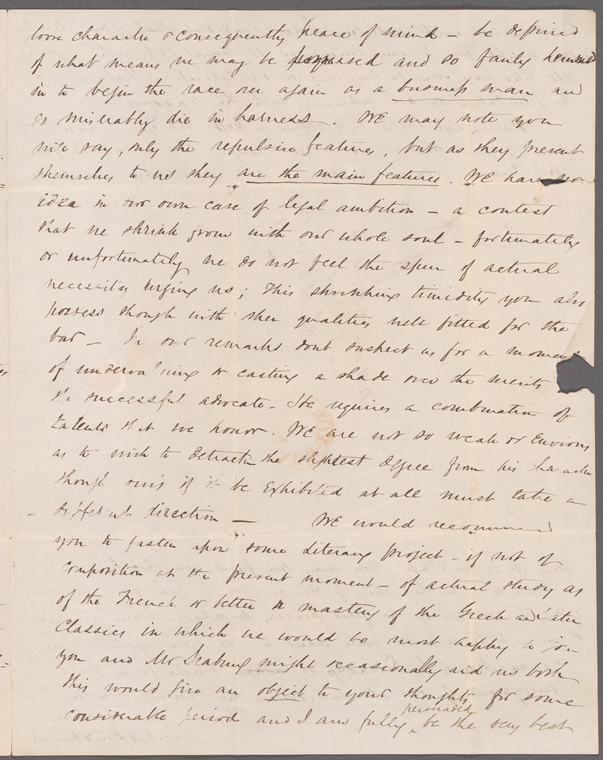 loose character & consequently peace of mind – be deprived
of what means we may be possessed and so fairly hemmed
in to begin the race over again as a business man and
so miserably die in harness. We may note you
will say, only the repulsive features, but as they present
themselves to us they are the main features. We have no
idea in our own case of legal ambition – a contest
that we shrink from with our whole soul – fortunately
or unfortunately we do not feel the spur of actual
necessities urging us; this shrinking timidity you also
possess though with other qualities well fitted for the
bar – In our remarks dont suspect us for a moment
of undervaluing or casting a shade over the merits
the successful advocate – He requires a combination of
talents that we honor. We are not so weak or envious
as to wish to detract in the slightest degree from his character
though ours if it be exhibited at all must take a
different direction — We would recommend
you to fasten upon some literary project – if not of
composition at the present moment – of actual study as
of the French or better a mastery of the Greek and Latin
Classics in which we would be most happy to join
you and Mr Seabury might occasionally aid us both
this would give an object to your thoughts for some
considerable period and I am fully persuaded be the very best